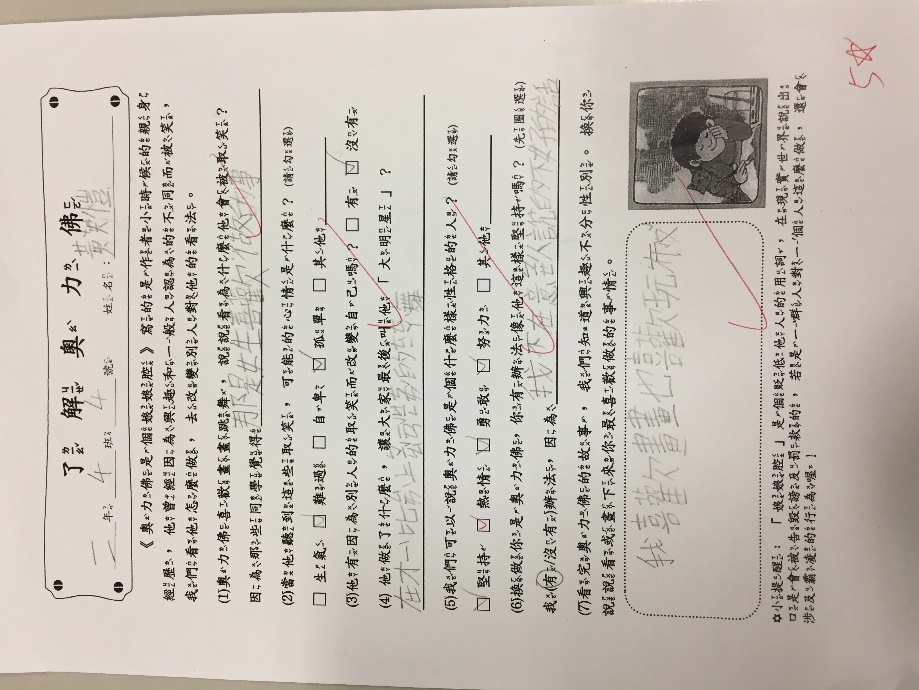 了解奧力佛
一年 4 班 4 號 姓名：
《奧力佛是個娘娘腔》寫的是作者小時候的親身
經歷，他曾經因為興趣和一般人認為的不同而被笑，
我們看他怎麼做，去改變別人對他的看法。
(1)奧力佛喜歡畫畫跳舞，說說看為什麼他會被取笑？
因為那些同學覺得 那是女生喜歡做的事
(2)當他聽到這些取笑，可能的心情是什麼？(請勾選)
□ 生氣 ☑ 難過 □ 自卑 ☑ 孤單 □ 其他
(3)他有因為別人的取笑而改變自己嗎？ □ 有 ☑ 沒有
(4) 他做了什麼，讓大家最後叫他「大明星」？
在才一比台上
(5)我們可以說奧力佛是個什麼樣性格的人？(請勾選)
☑ 堅持 ☑ 熱情 ☑ 勇敢 ☑ 努力 □ 其他
(6)換做你是奧力佛，你有辦法像他這樣堅持嗎？(先圈選)
我(有/沒有)辦法，因為 我不在意
(7)看完奧力佛的故事，我們知道興趣不分性別。換你
說說看或畫下來你最喜歡做的事情。
我喜歡畫畫也喜歡玩
✡小提醒：「娘娘腔」是個貶低他人的用詞，在現實世界說出
口是會被告毀謗及罰款的，若是一群人對一個人這麼做，還會
涉及霸凌的行為喔！
5☆